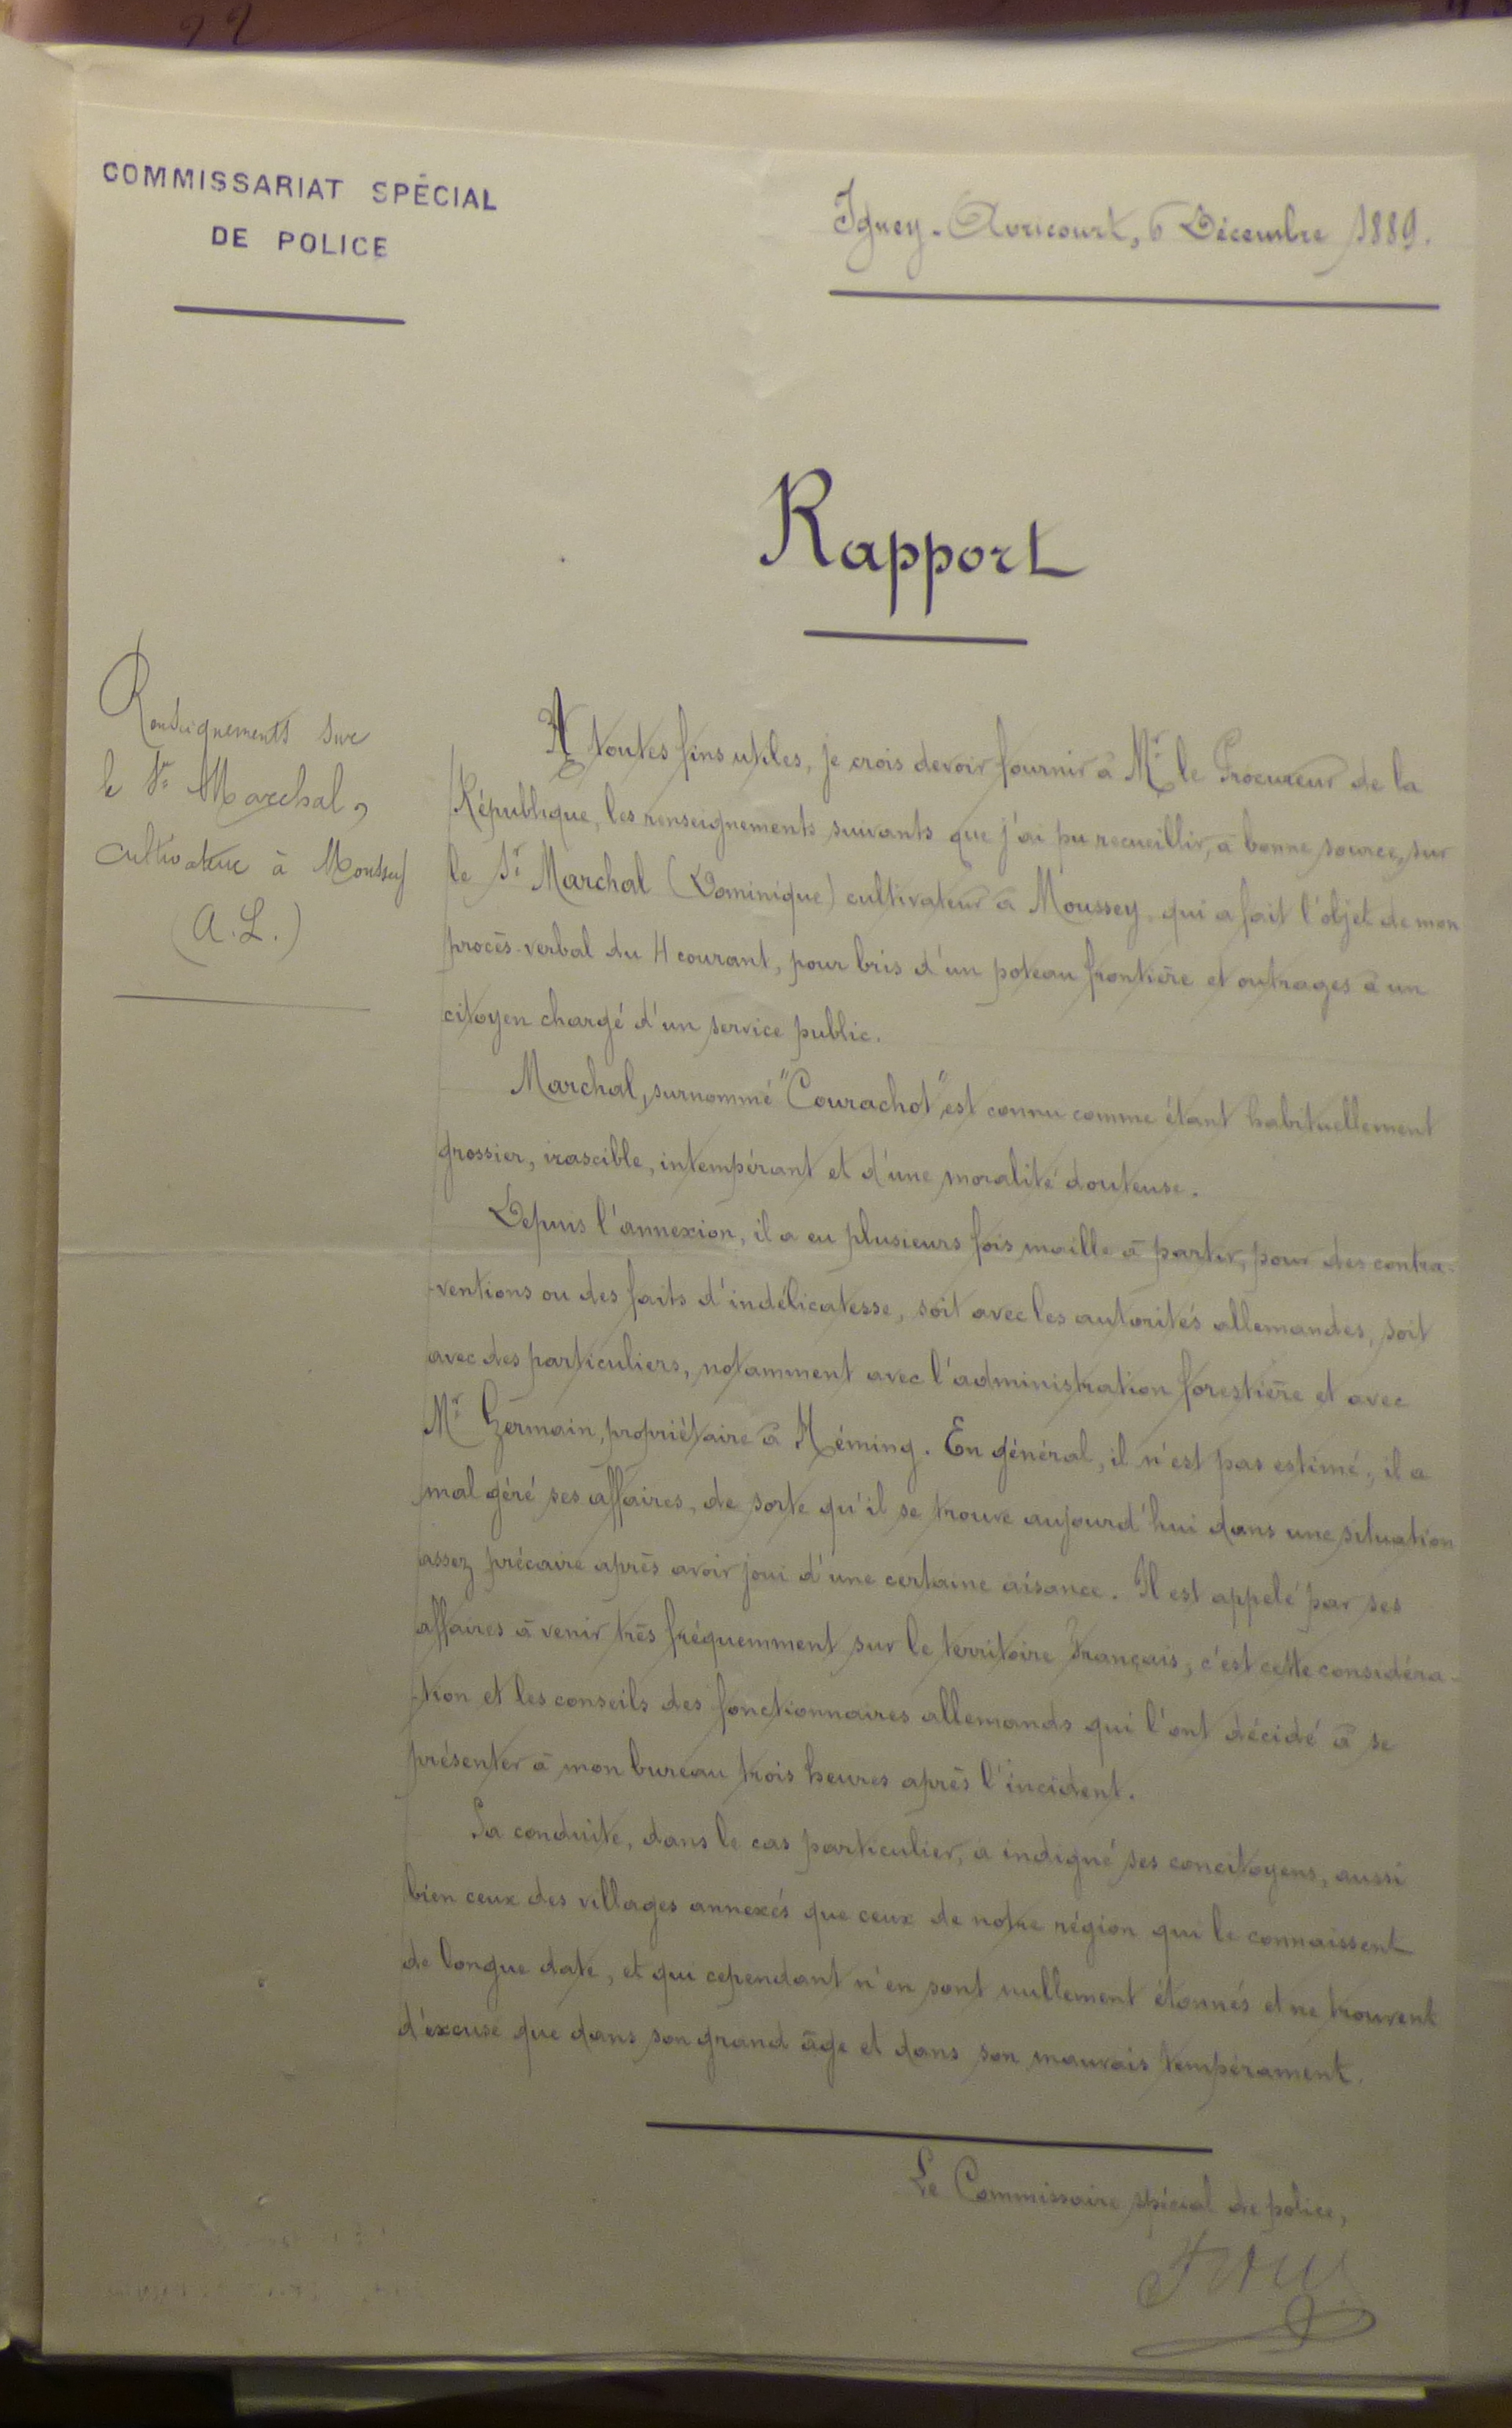 COMMISSARIAT SPÉCIAL
DE POLICE
Igney-Avricourt, 6 Décembre 1889.
Rapport
Renseignements sur
le Sr Marchal,
cultivateur à Moussey
(A.L.)
A toutes fins utiles, je crois devoir fournir à Mr le Procureur de la
République, les renseignements suivants que j'ai pu recueillir, à bonne source, sur
le Sr Marchal (Dominique) cultivateur à Moussey, qui a fait l'objet de mon
procès-verbal du 4 courant, pour bris d'un poteau frontière et outrages à un
citoyen chargé d'un service public.
Marchal, surnommé "Courachot" est connu comme étant habituellement
grossier, irascible, intempérant et d'une moralité douteuse.
Depuis l'annexion, il a eu plusieurs fois maille à partir, pour des contra-
-ventions ou des faits d'indélicatesse, soit avec les autorités allemandes, soit
avec des particuliers, notamment avec l'administration forestière et avec
Mr Germain, propriétaire à Héming. En général, il n'est pas estimé, il a
mal géré ses affaires, de sorte qu'il se trouve aujourd'hui dans une situation
assez précaire après avoir joui d'une certaine aisance. Il est appelé par ses
affaires à venir très fréquemment sur le territoire Français, c'est cette considéra-
-tion et les conseils des fonctionnaires allemands qui l'ont décidé à se
présenter à mon bureau trois heures après l'incident.
Sa conduite, dans le cas particulier, a indigné ses concitoyens, aussi
bien ceux des villages annexés que ceux de notre région qui le connaissent
de longue date, et qui cependant n'en sont nullement étonnés et ne trouvent
d'excuse que dans son grand âge et dans son mauvais tempérament.
Le Commissaire spécial de police,